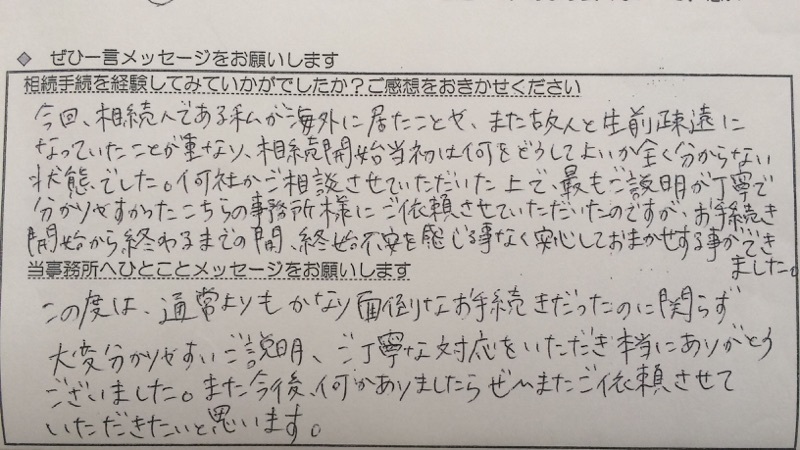 ◆ ぜひ一言メッセージをお願いします
相続手続を経験してみていかがでしたか？ご感想をおきかせください
今回、相続人である私が海外に居たことや、また故人と生前疎遠に
なっていたことが重なり、相続開始当初は何をどうしてよいか全く分からない
状態でした。何社かご相談させていただいた上で、最もご説明が丁寧で
分かりやすかったこちらの事務所様にご依頼させていただいたのですが、お手続き
開始から終わるまでの間、終始不安を感じる事なく安心しておまかせする事ができ
ました。
当事務所へひとことメッセージをお願いします
この度は、通常よりもかなり面倒なお手続きだったのに関らず
大変分かりやすいご説明、ご丁寧な対応をいただき本当にありがとう
ございました。また今後、何かありましたらぜひまたご依頼させて
いただきたいと思います。